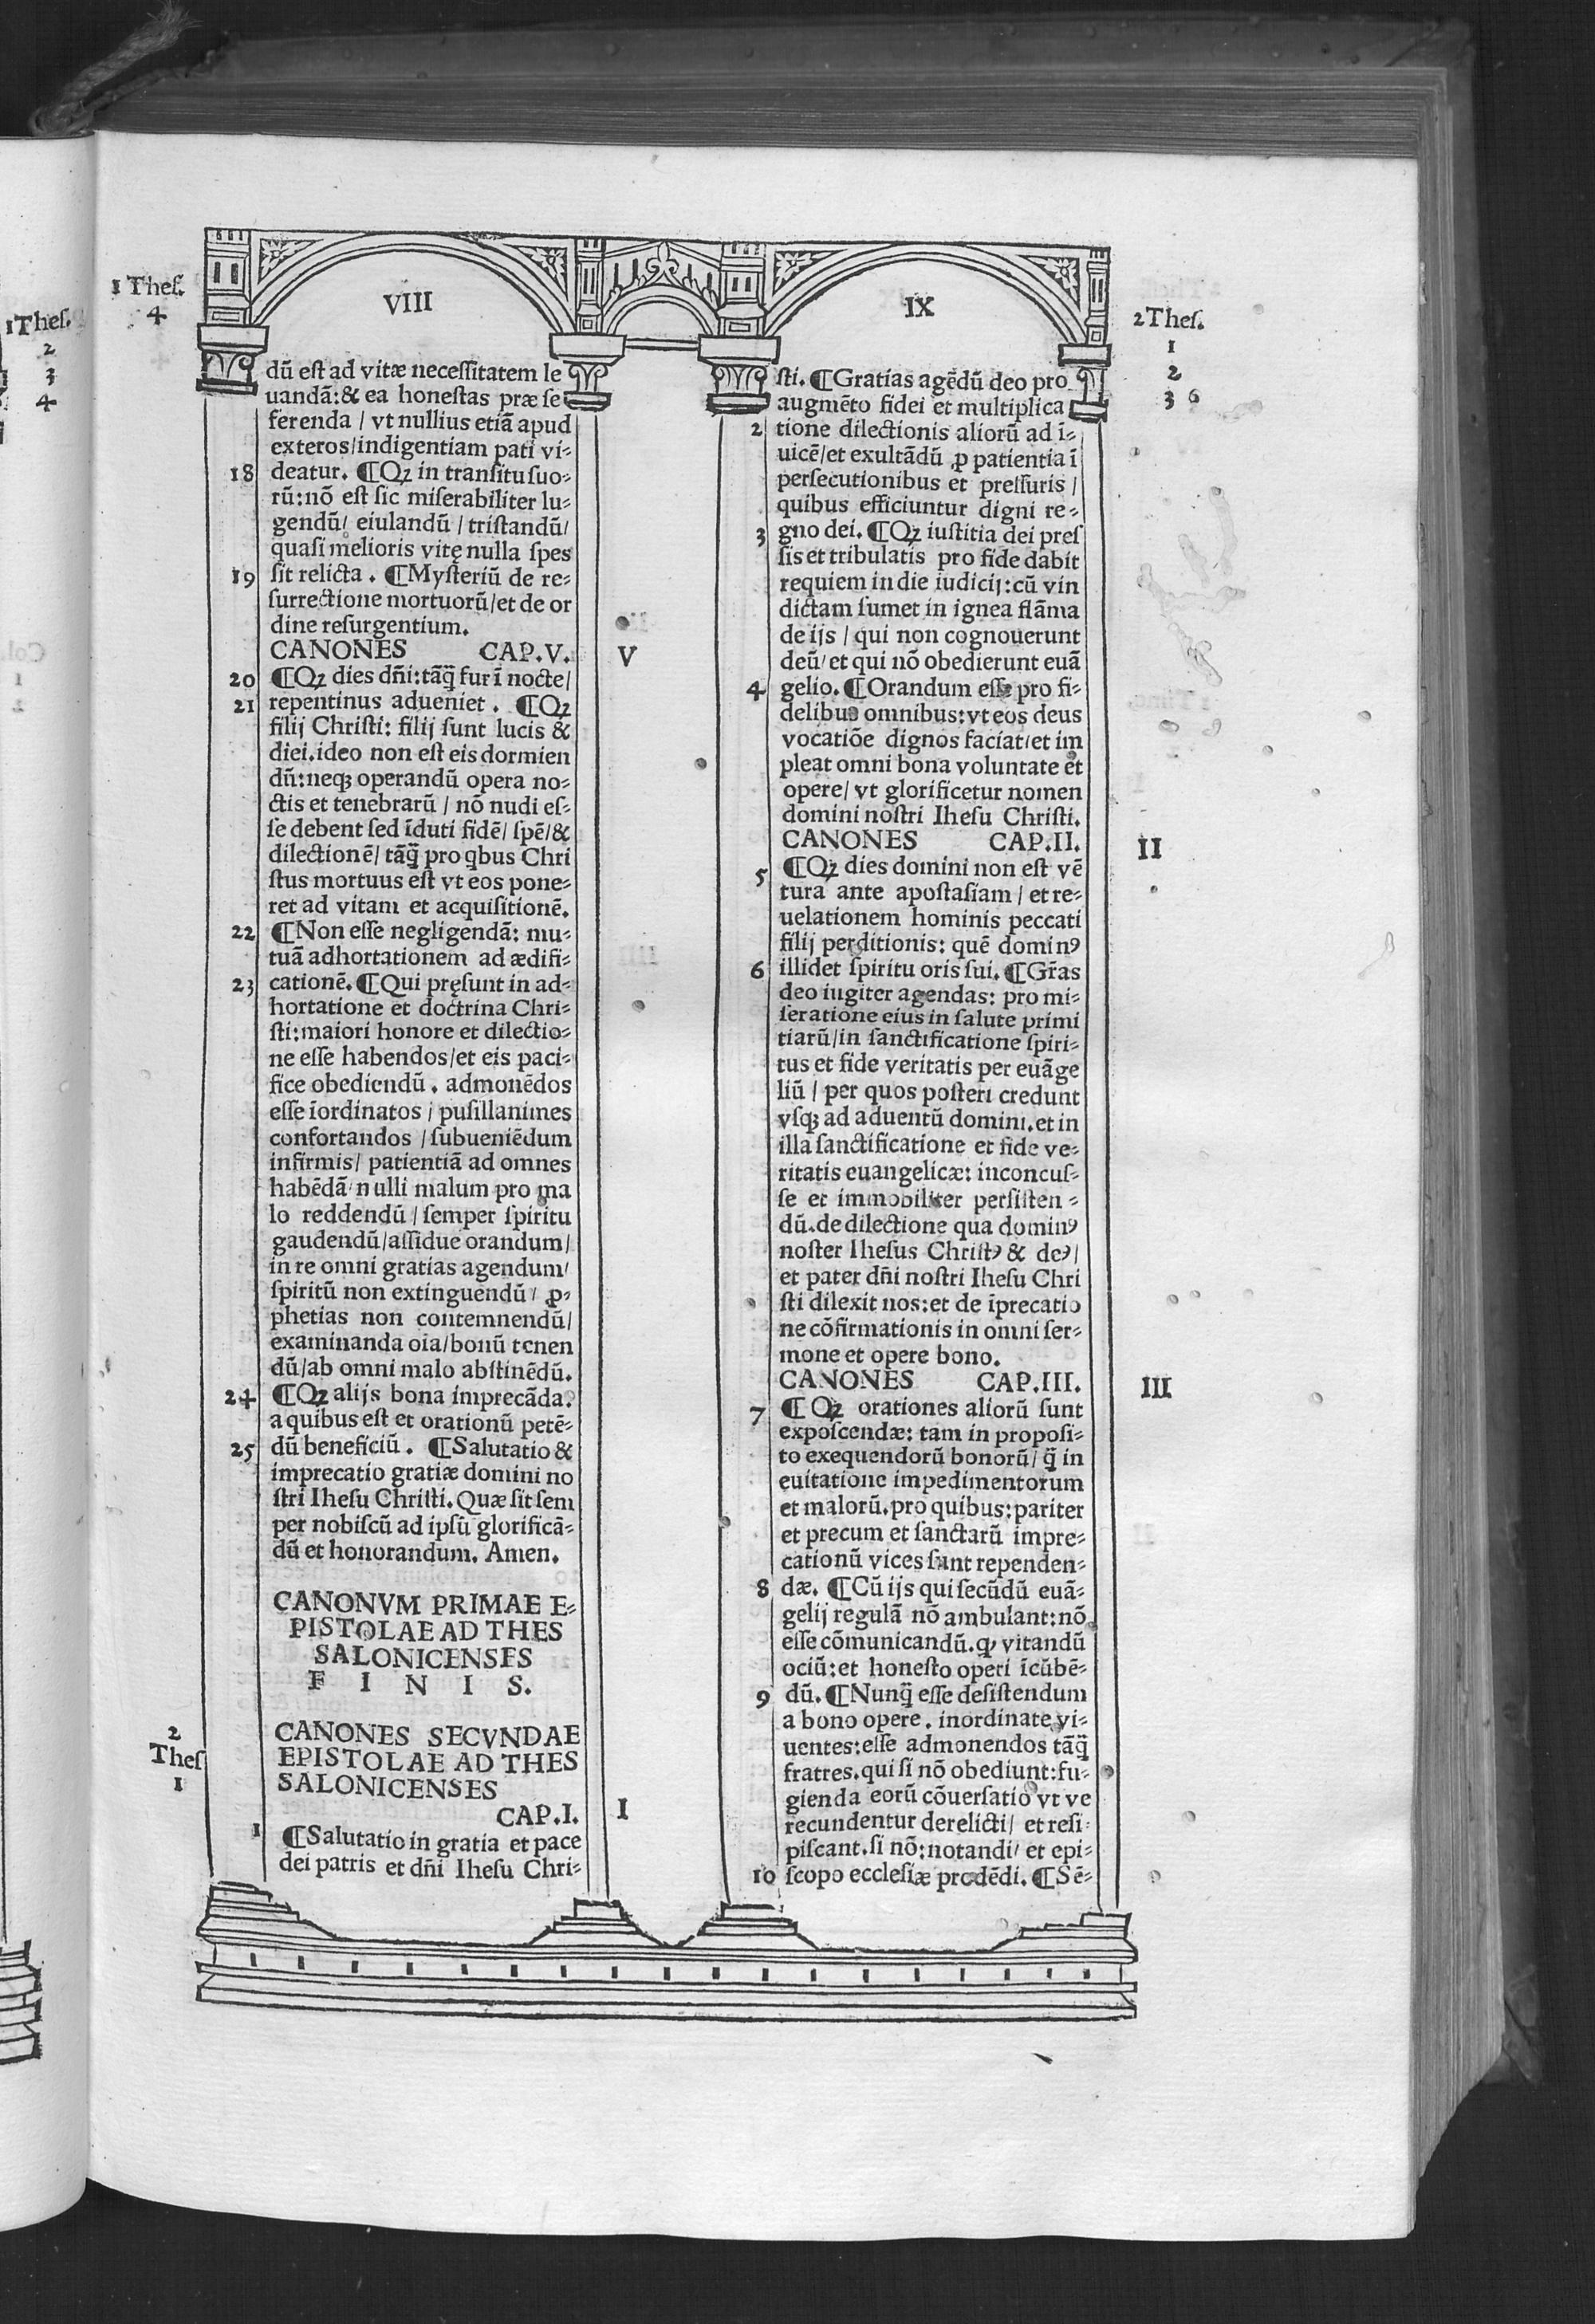 1 Thes.
4
1 Thes.
2
3
4
VIII
dū est ad vitæ necessitatem le
uandā: & ea honestas præ se
ferenda / vt nullius etiā apud
exteros / indigentiam pati vi⸗
18 deatur. ¶ Qꝫ in transitu suo⸗
rū: nō est sic miserabiliter lu⸗
gendū / eiulandū / tristandū /
quasi melioris vitę nulla spes
19 sit relicta. ¶ Mysteriū de re⸗
surrectione mortuorū / et de or
dine resurgentium.
CANONES CAP.V.
V
20 ¶ Qꝫ dies dñi: tāq̄ fur ī nocte /
21 repentinus adueniet. ¶ Qꝫ
filij Christi: filij sunt lucis &
diei. ideo non est eis dormien
dū: neqꝫ operandū opera no⸗
ctis et tenebrarū / nō nudi es⸗
se debent sed īduti fidē / spē / &
dilectionē / tāq̄ pro qbus Chri
stus mortuus est vt eos pone⸗
ret ad vitam et acquisitionē.
22 ¶ Non esse negligendā: mu⸗
tuā adhortationem ad ædifi⸗
23 cationē. ¶ Qui pręsunt in ad⸗
hortatione et doctrina Chri⸗
sti: maiori honore et dilectio⸗
ne esse habendos / et eis paci⸗
fice obediendū. admonēdos
esse īordinatos / pusillanimes
confortandos / subueniēdum
infirmis / patientiā ad omnes
habēdā / nulli malum pro ma
lo reddendū / semper spiritu
gaudendū / assidue orandum /
in re omni gratias agendum /
spiritū non extinguendū / ꝓ⸗
phetias non contemnendū /
examinanda oīa / bonū tenen
dū / ab omni malo abstinēdū.
24 ¶ Qꝫ alijs bona imprecāda.
a quibus est et orationū petē⸗
25 dū beneficiū. ¶ Salutatio &
imprecatio gratiæ domini no
stri Ihesu Christi. Quæ sit sem
per nobiscū ad ipsū glorificā⸗
dū et honorandum. Amen.
CANONVM PRIMAE E⸗
PISTOLAE AD THES
SALONICENSES
F I N I S.
2
Thes
1
CANONES SECVNDAE
EPISTOLAE AD THES
SALONICENSES
CAP.I.
I
1 ¶ Salutatio in gratia et pace
dei patris et dñi Ihesu Chri⸗
IX
2 Thes.
1
2
3 6
sti. ¶ Gratias agēdū deo pro
augmēto fidei et multiplica
2 tione dilectionis aliorū ad ī⸗
uicē / et exultādū ꝓ patientia ī
persecutionibus et pressuris /
quibus efficiuntur digni re⸗
3 gno dei. ¶ Qꝫ iustitia dei pres
sis et tribulatis pro fide dabit
requiem in die iudicij: cū vin
dictam sumet in ignea flāma
de ijs / qui non cognouerunt
deū / et qui nō obedierunt euā
4 gelio. ¶ Orandum esse pro fi⸗
delibus omnibus: vt eos deus
vocatiōe dignos faciat / et im
pleat omni bona voluntate et
opere / vt glorificetur nomen
domini nostri Ihesu Christi.
CANONES CAP.II.
II
5 ¶ Qꝫ dies domini non est vē
tura ante apostasiam / et re⸗
uelationem hominis peccati
filij perditionis: quē dominꝰ
6 illidet spiritu oris sui. ¶ Gr̄as
deo iugiter agendas: pro mi⸗
seratione eius in salute primi
tiarū / in sanctificatione spiri⸗
tus et fide veritatis per euāge
liū / per quos posteri credunt
vsqꝫ ad aduentū domini. et in
illa sanctificatione et fide ve⸗
ritatis euangelicæ: inconcus⸗
se et immobiliter persisten⸗
dū. de dilectione qua dominꝰ
noster Ihesus Christꝰ & deꝰ /
et pater dñi nostri Ihesu Chri
sti dilexit nos: et de īprecatio
ne cōfirmationis in omni ser⸗
mone et opere bono.
CANONES CAP.III.
III
7 ¶ Qꝫ orationes aliorū sunt
exposcendæ: tam in proposi⸗
to exequendorū bonorū / q̄ in
euitatione impedimentorum
et malorū. pro quibus: pariter
et precum et sanctarū impre⸗
cationū vices sunt rependen⸗
8 dæ. ¶ Cū ijs qui secūdū euā⸗
gelij regulā nō ambulant: nō
esse cōmunicandū. qꝫ vitandū
ociū: et honesto operi īcūbē⸗
9 dū. ¶ Nunq̄ esse desistendum
a bono opere. inordinate vi⸗
uentes: esse admonendos tāq̄
fratres. qui si nō obediunt: fu⸗
gienda eorū cōuersatio vt ve
recundentur derelicti / et resi⸗
piscant. si nō: notandi / et epi⸗
10 scopo ecclesiæ prodēdi. ¶ Sē⸗